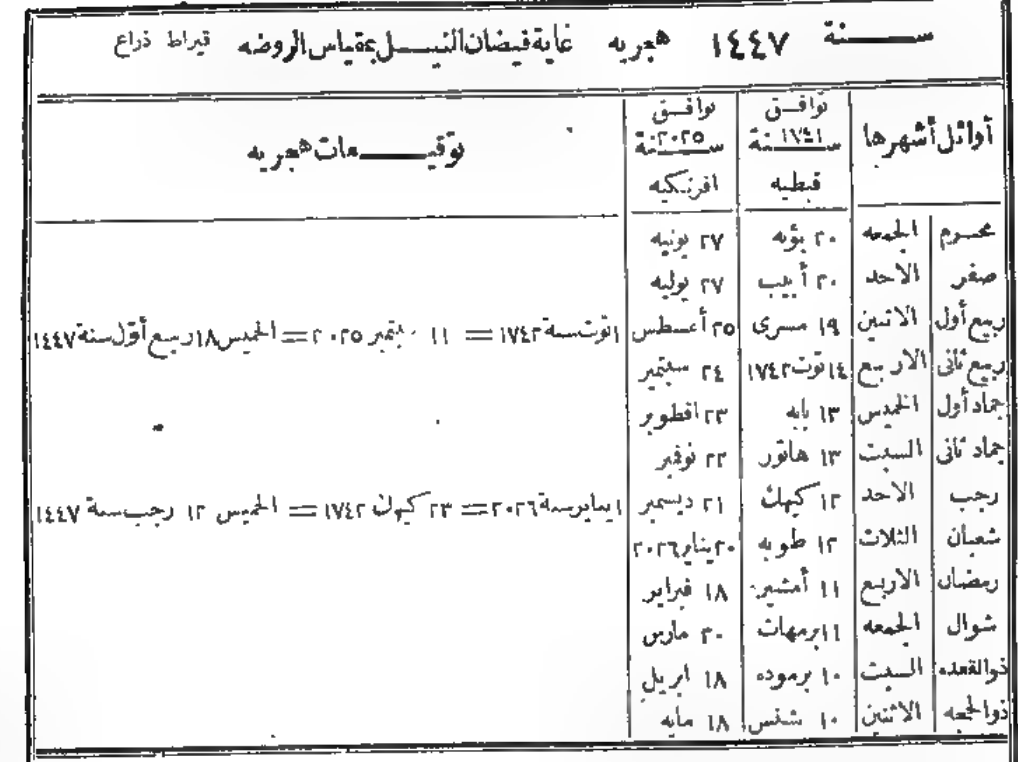 سنة ١٤٤٧ هجريه غاية فيضان النيل بمقياس الروضه قيراط ذراع
أوائل أشهرها توافق سنة ١٧٤١ قبطيه توافق سنة ٢٠٢٥ افرنكيه توقيعات هجريه
محرم الجمعه ٢٠ بؤنه ٢٧ يونيه
صفر الاحد ٢٠ أبيب ٢٧ يوليه
ربيع أول الاثنين ١٩ مسرى ٢٥ أغسطس ١ توت سنة ١٧٤٢ = ١١ سبتمبر ٢٠٢٥ = الخميس ١٨ ربيع أول سنة ١٤٤٧
ربيع ثانى الاربع ١٤ توت ١٧٤٢ ٢٤ سبتمبر
جماد أول الخميس ١٣ بابه ٢٣ اقطوبر
جماد ثانى السبت ١٣ هاتور ٢٢ نوفمبر
رجب الاحد ١٢ كيهك ٢١ ديسمبر ١ يناير سنة ٢٠٢٦ = ٢٣ كيهك ١٧٤٢ = الخميس ١٢ رجب سنة ١٤٤٧
شعبان الثلاث ١٢ طوبه ٢٠ يناير ٢٠٢٦
رمضان الاربع ١١ أمشير ١٨ فبراير
شوال الجمعه ١١ برمهات ٢٠ مارس
ذو القعده السبت ١٠ برموده ١٨ ابريل
ذو الحجه الاثنين ١٠ بشنس ١٨ مايه